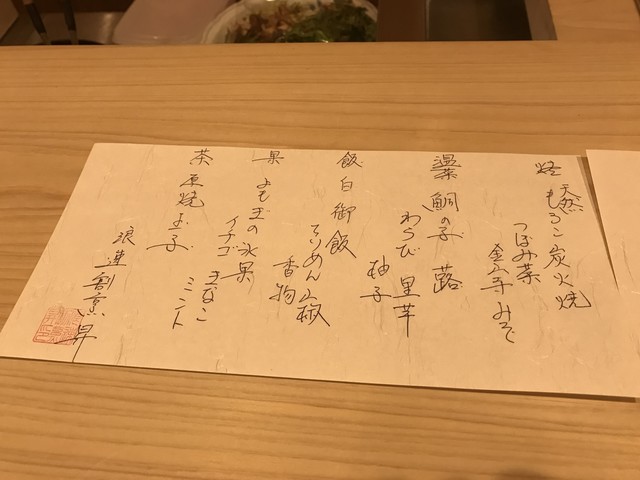 焼 天然もろこ炭火焼
つぼみ菜
金山寺みそ
温菜 鯛の子 蕗
わらび 里芋
柚子
飯 白御飯
ちりめん山椒
香物
果 よもぎの氷果
イチゴ きなこ
ミント
茶 豆焼玉子
浪速割烹 昇